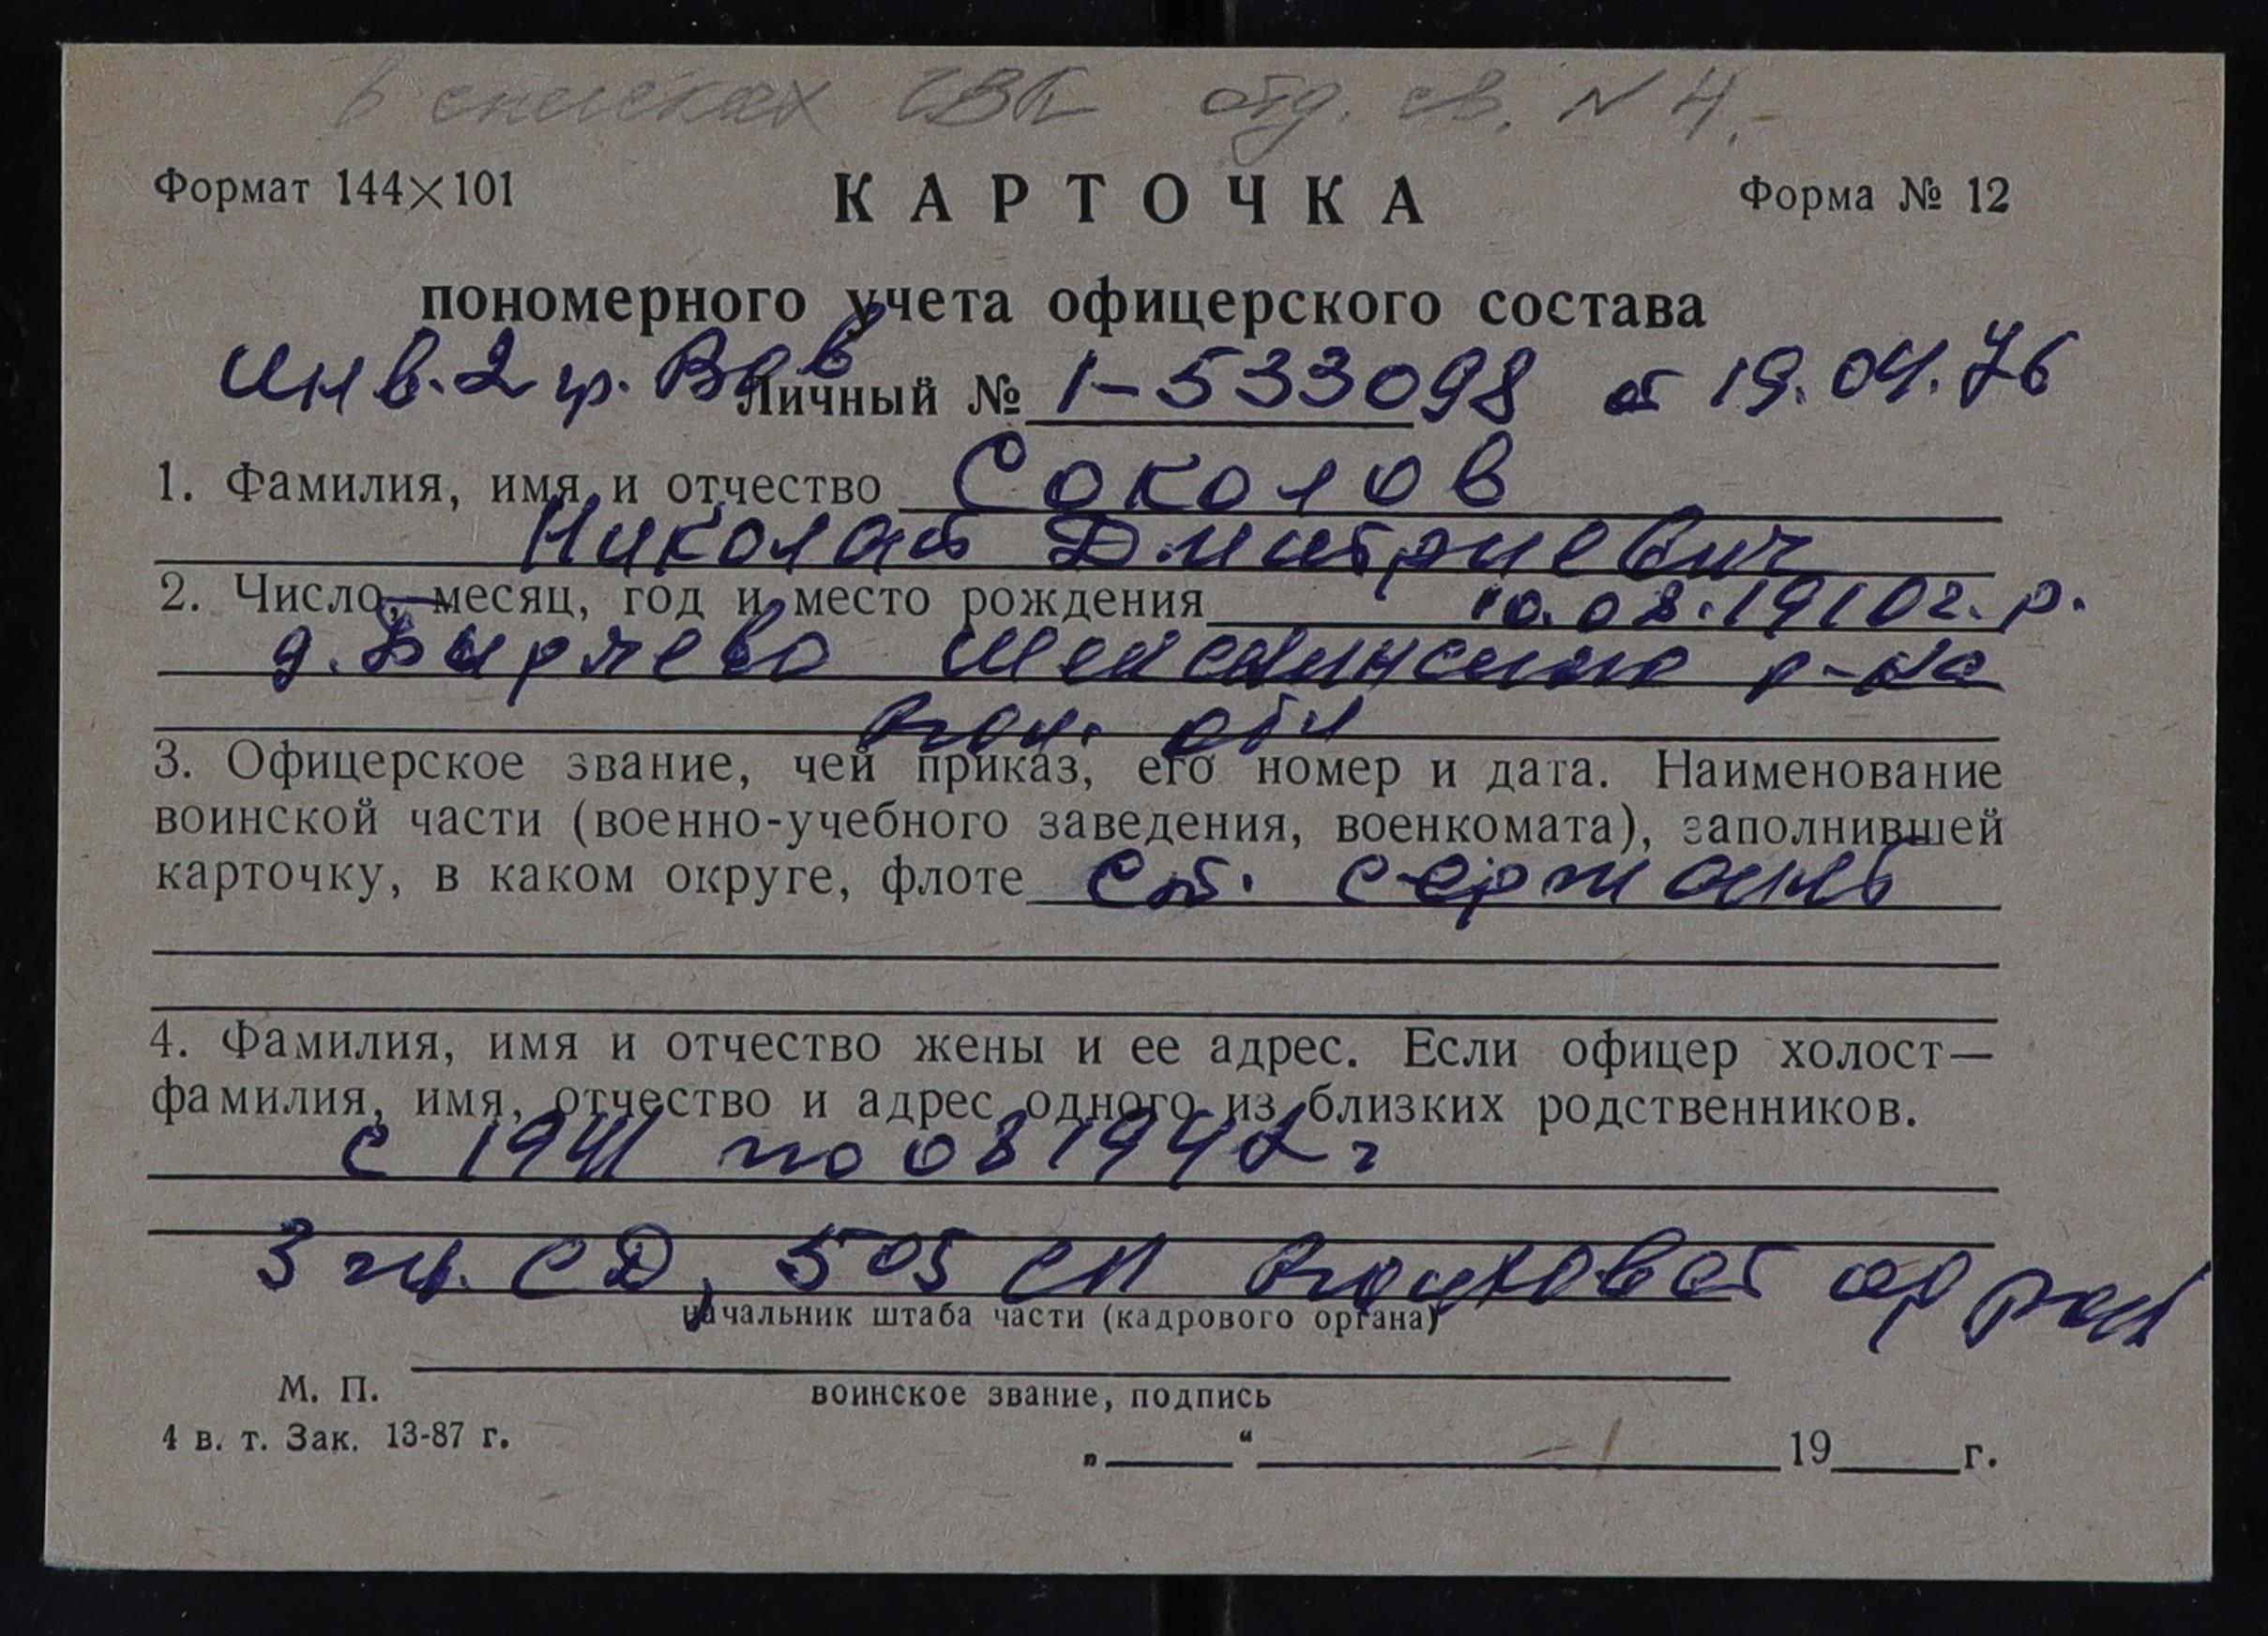 в списках
отд. св. N 4.
Формат 144×101 КАРТОЧКА Форма № 12
пономерного учета офицерского состава
Инв. 2 гр. ВОВ Личный № 1-533098 от 19.04.76
1. Фамилия, имя и отчество Соколов
Николай Дмитриевич
2. Число, месяц, год и место рождения 10.08.1910 г. р.
д. Шекснинского р-на
Вол. обл
3. Офицерское звание, чей приказ, его номер и дата. Наименование
воинской части (военно-учебного заведения, военкомата), заполнившей
карточку, в каком округе, флоте ст. сержант
4. Фамилия, имя и отчество жены и ее адрес. Если офицер холост—
фамилия, имя, отчество и адрес одного из близких родственников.
с 1941 по 08 1942 г
3 гв. СД, 505 СП
начальник штаба части (кадрового органа)
М. П.
воинское звание, подпись
4 в. т. Зак. 13-87 г.
„ “ 19 г.